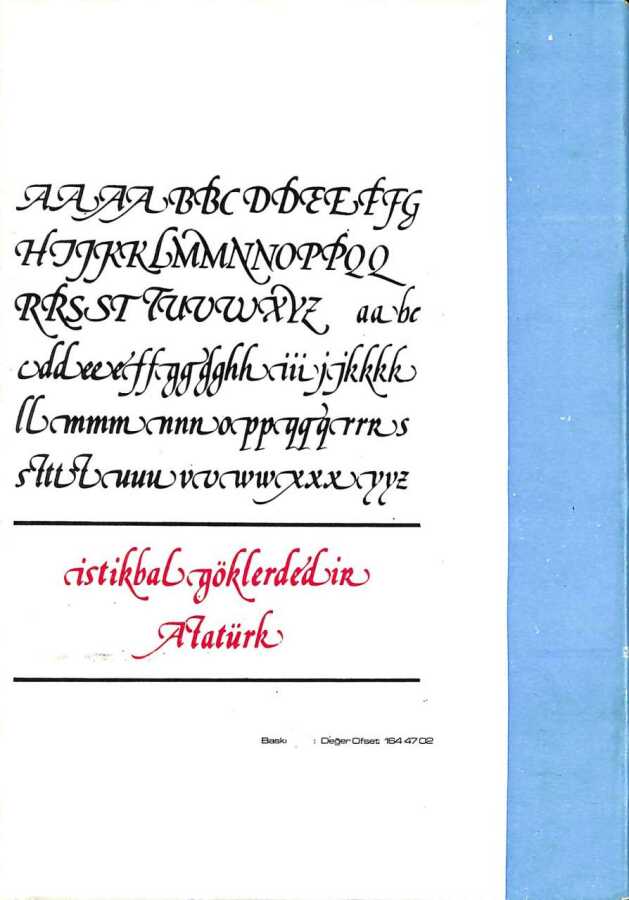 AAAABBCDDEEFFG
HIJJKKLMMNNOPPQQ
RRSSTTUVWXYZ aabc
cdddeeeffggghhiiijjkkkk
lllmmmnnnoppqqqrrrs
stttuuuvvwwxxxyyz
istikbal göklerdedir
Atatürk
Baskı : Değer Ofset 164 47 02